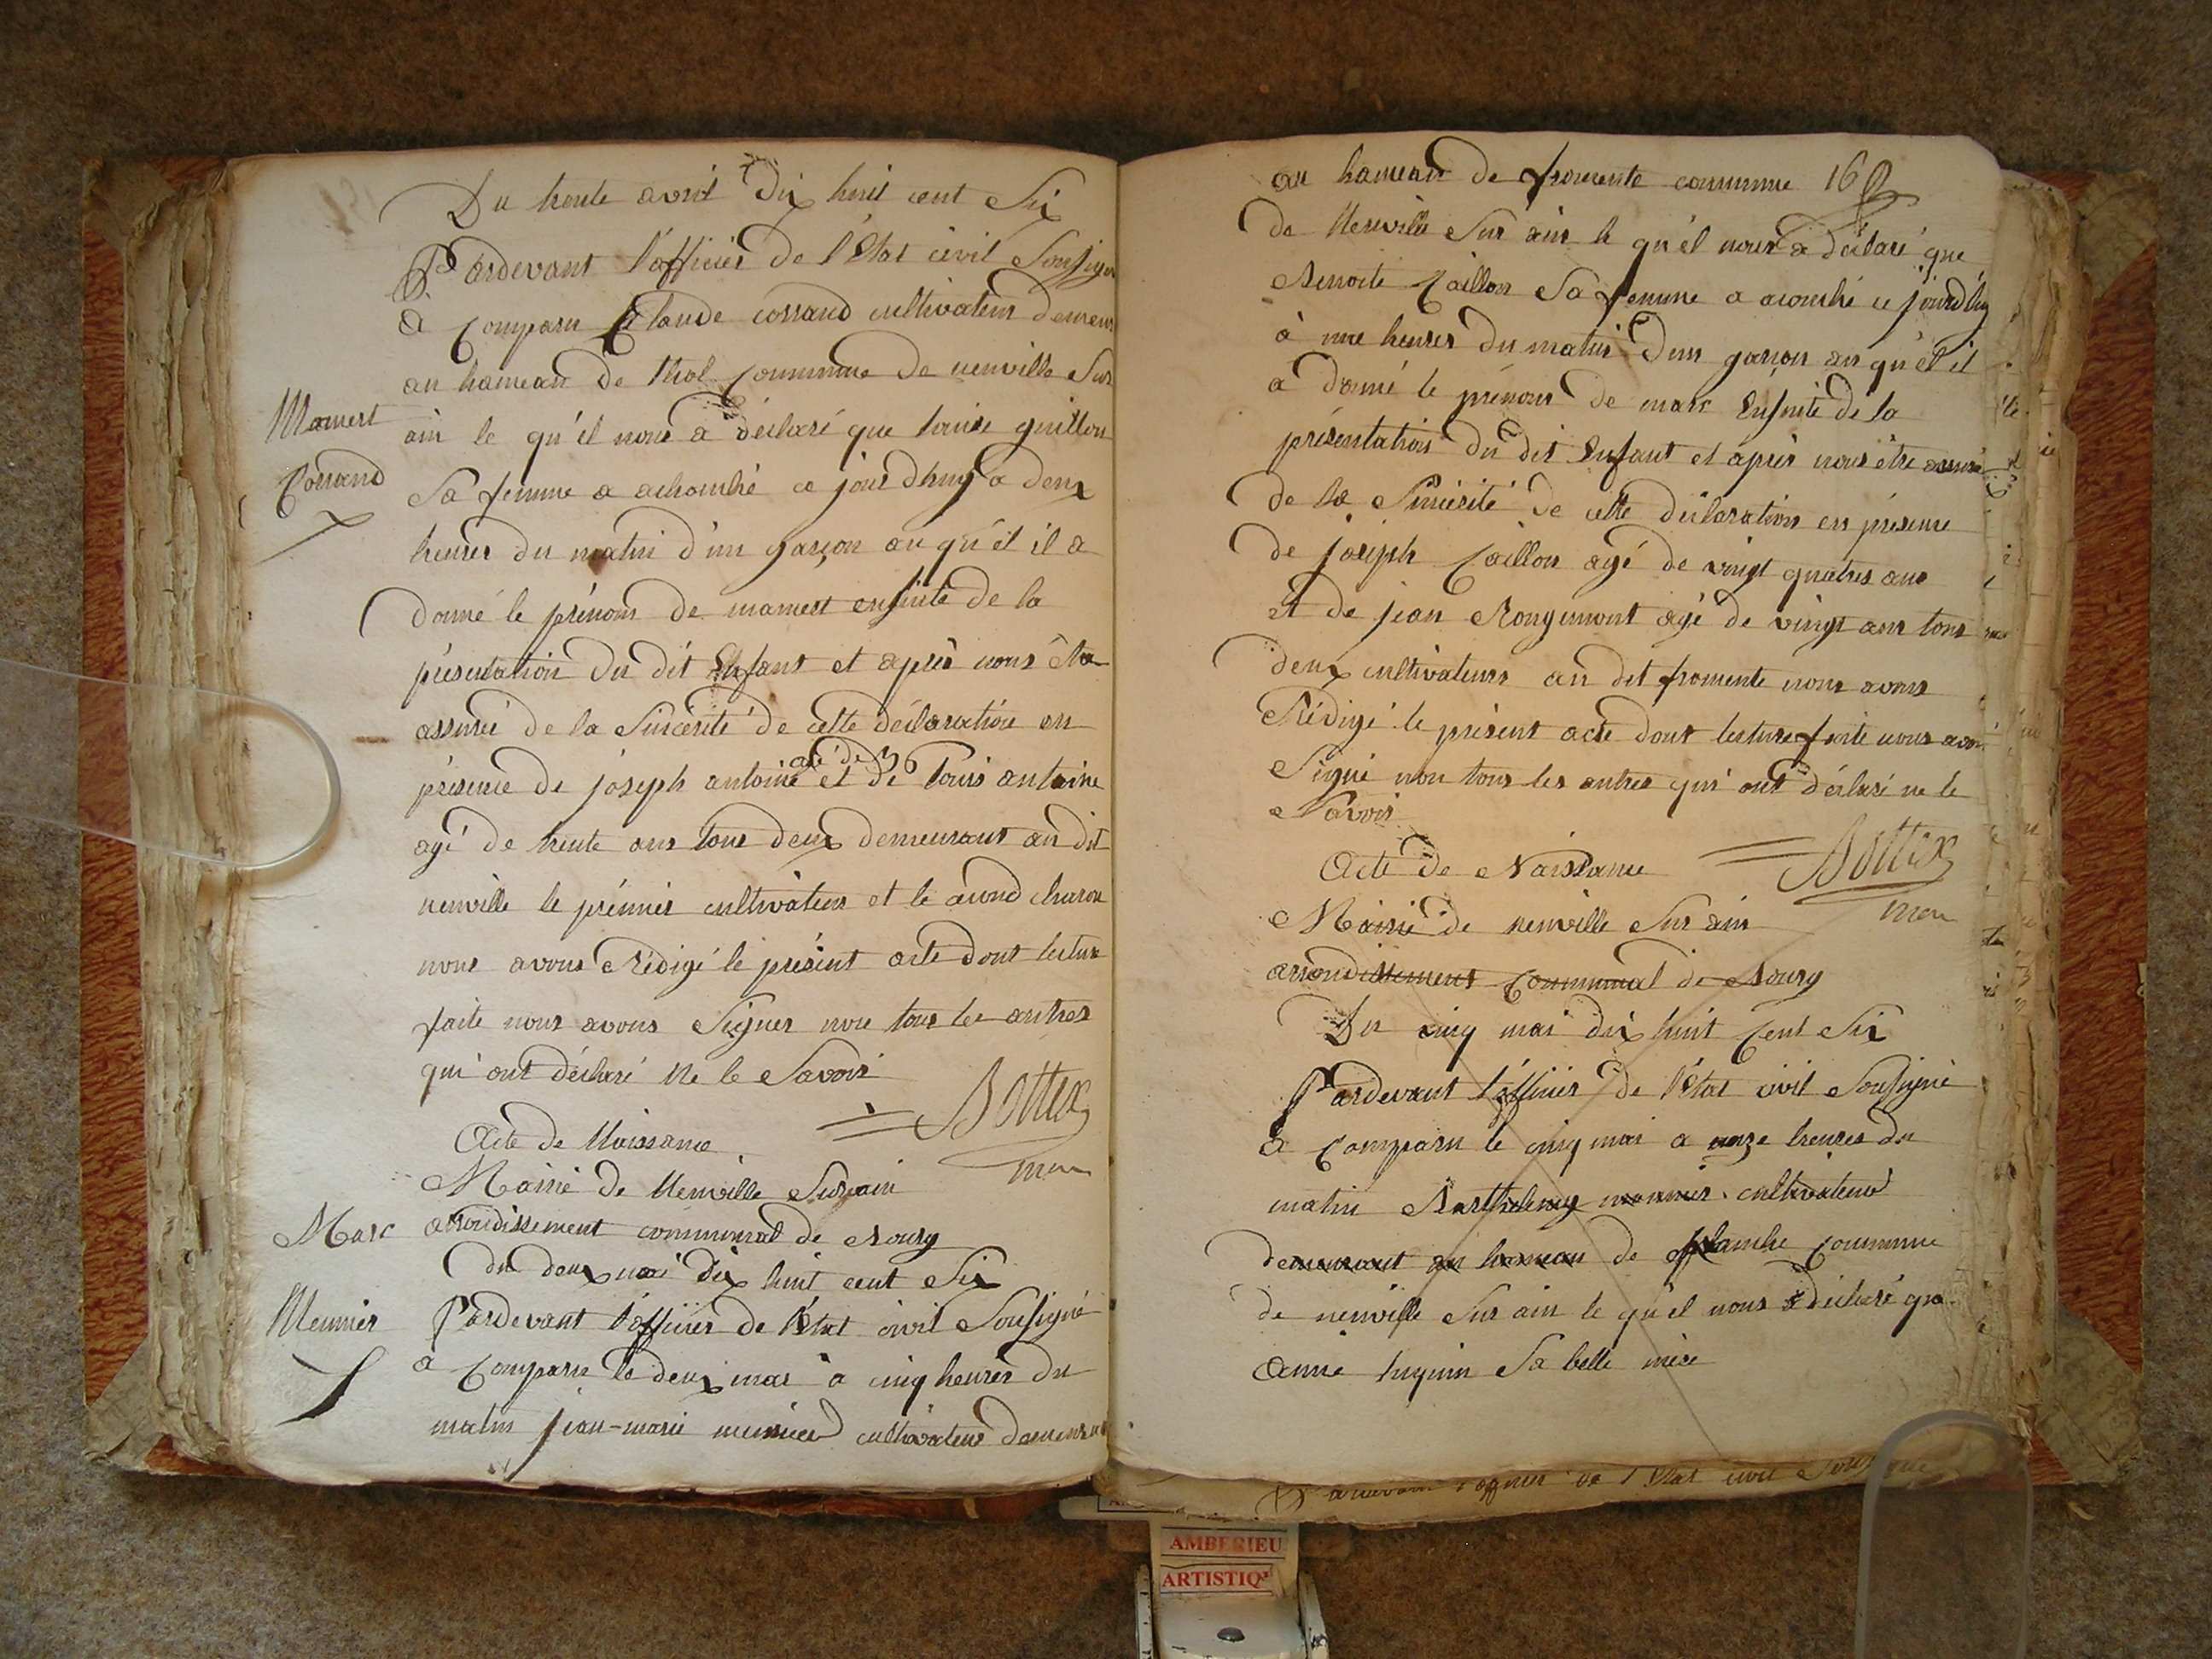 Du trente avril Dix huit cent Six
Pardevant l'officier de l'Etat civil Sousigné
a Comparu Claude corrand cultivateur demeur
au hameau de thol Commune de neuville Sur
Mamert
ain le qu'il nous a déclaré que louise guillon
Corrand
Sa femme a achouché ce jour d'huy a deux
heures du matin d'un garçon au qu'el il a
donné le prénom de mamert ensuite de la
présentation du dit Enfant et après nous être
assuré de la Sincérité de cette déclaration en
présence de joseph antoine agé de 36 et de louis antoine
agé de trente ans tous deux demeurant au dit
neuville le prémier cultivateur et le cecond charon
nous avons Rédigé le présent acte dont lecture
faite nous avons Signer non tous les autres
qui ont déclaré Ne le Savoir
Bottex
Acte de Naissance
maire
Mairie de Neuville Sur ain
Marc
arrondissement communal de Bourg
du deux mai dix huit cent Six
Meunier
Pardevant l'officier de l'Etat civil Sousigné
a Comparu le deux mai à cinq heures du
matin jean-marie meunier cultivateur demeurant
au hameau de fromente commune 16
de Neuville Sur ain le qu'él nous a déclaré que
Benoite Caillon Sa femme a acouché ce jourd'huy
à une heures du matin d'un garçon au qu'él il
a donné le prénom de marc Ensuite de la
présentation du dit Enfant et après nous être assuré
de la Sincérité de cette déclaration en présence
de joseph Caillon agé de vingt quatres ans
et de jean Rougemont agé de vingt ans tous
deux cultivateurs au dit fromente nous avons
Rédigé le présent acte dont lecture faite nous avons
Signé non tous les autres qui ont déclaré ne le
Savoir
Acte de Naissance
Bottex
maire
Mairie de neuville Sur ain
arrondissement Communal de Bourg
Du cinq mai dix huit Cent Six
Pardevant l'officier de l'Etat civil Sousigné
a Comparu le cinq mai a onze heures du
matin Barthelemy monnier cultivateur
demeurant au hameau de planche Commune
de neuville Sur ain le qu'el nous a déclaré que
Anne Sa belle mère
Pardevant l'officier de l'Etat civil Sousigné
AMBERIEU
ARTISTIQ